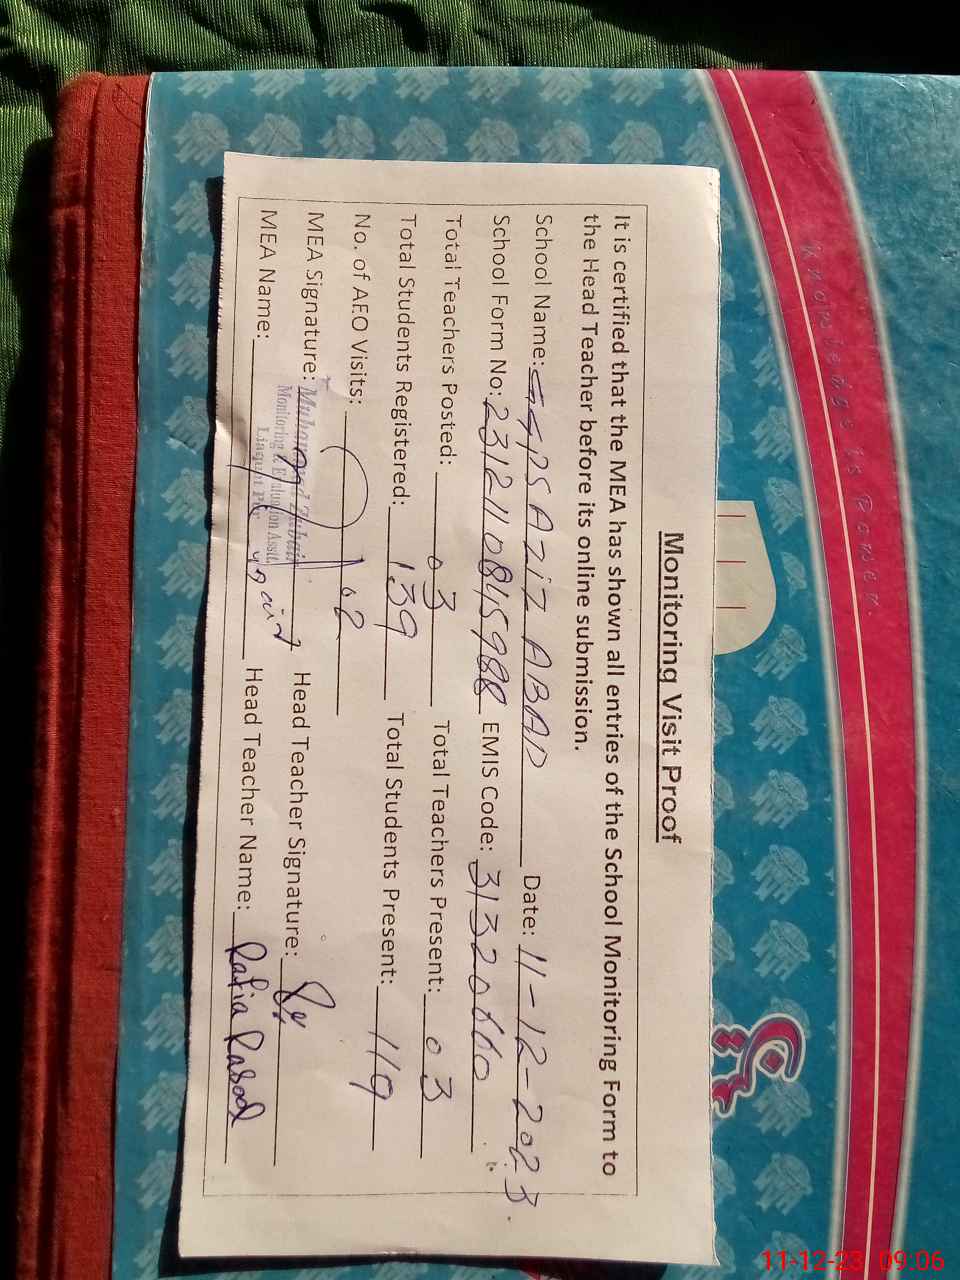 Knowledge is Power.
Monitoring Visit Proof
It is certified that the MEA has shown all entries of the School Monitoring Form to
the Head Teacher before its online submission.
School Name: GGPS AZIZ ABAD Date: 11-12-2023.
School Form No: EMIS Code:
Total Teachers Posted: 03 Total Teachers Present: 03
Total Students Registered: 139 Total Students Present: 119
No. of AEO Visits: 02
MEA Signature: Head Teacher Signature:
MEA Name: Head Teacher Name: Rafia Rasool
Muhammad Zubair
Monitoring & Evaluation Assit.
Liaquat Pur
11-12-23 09:06